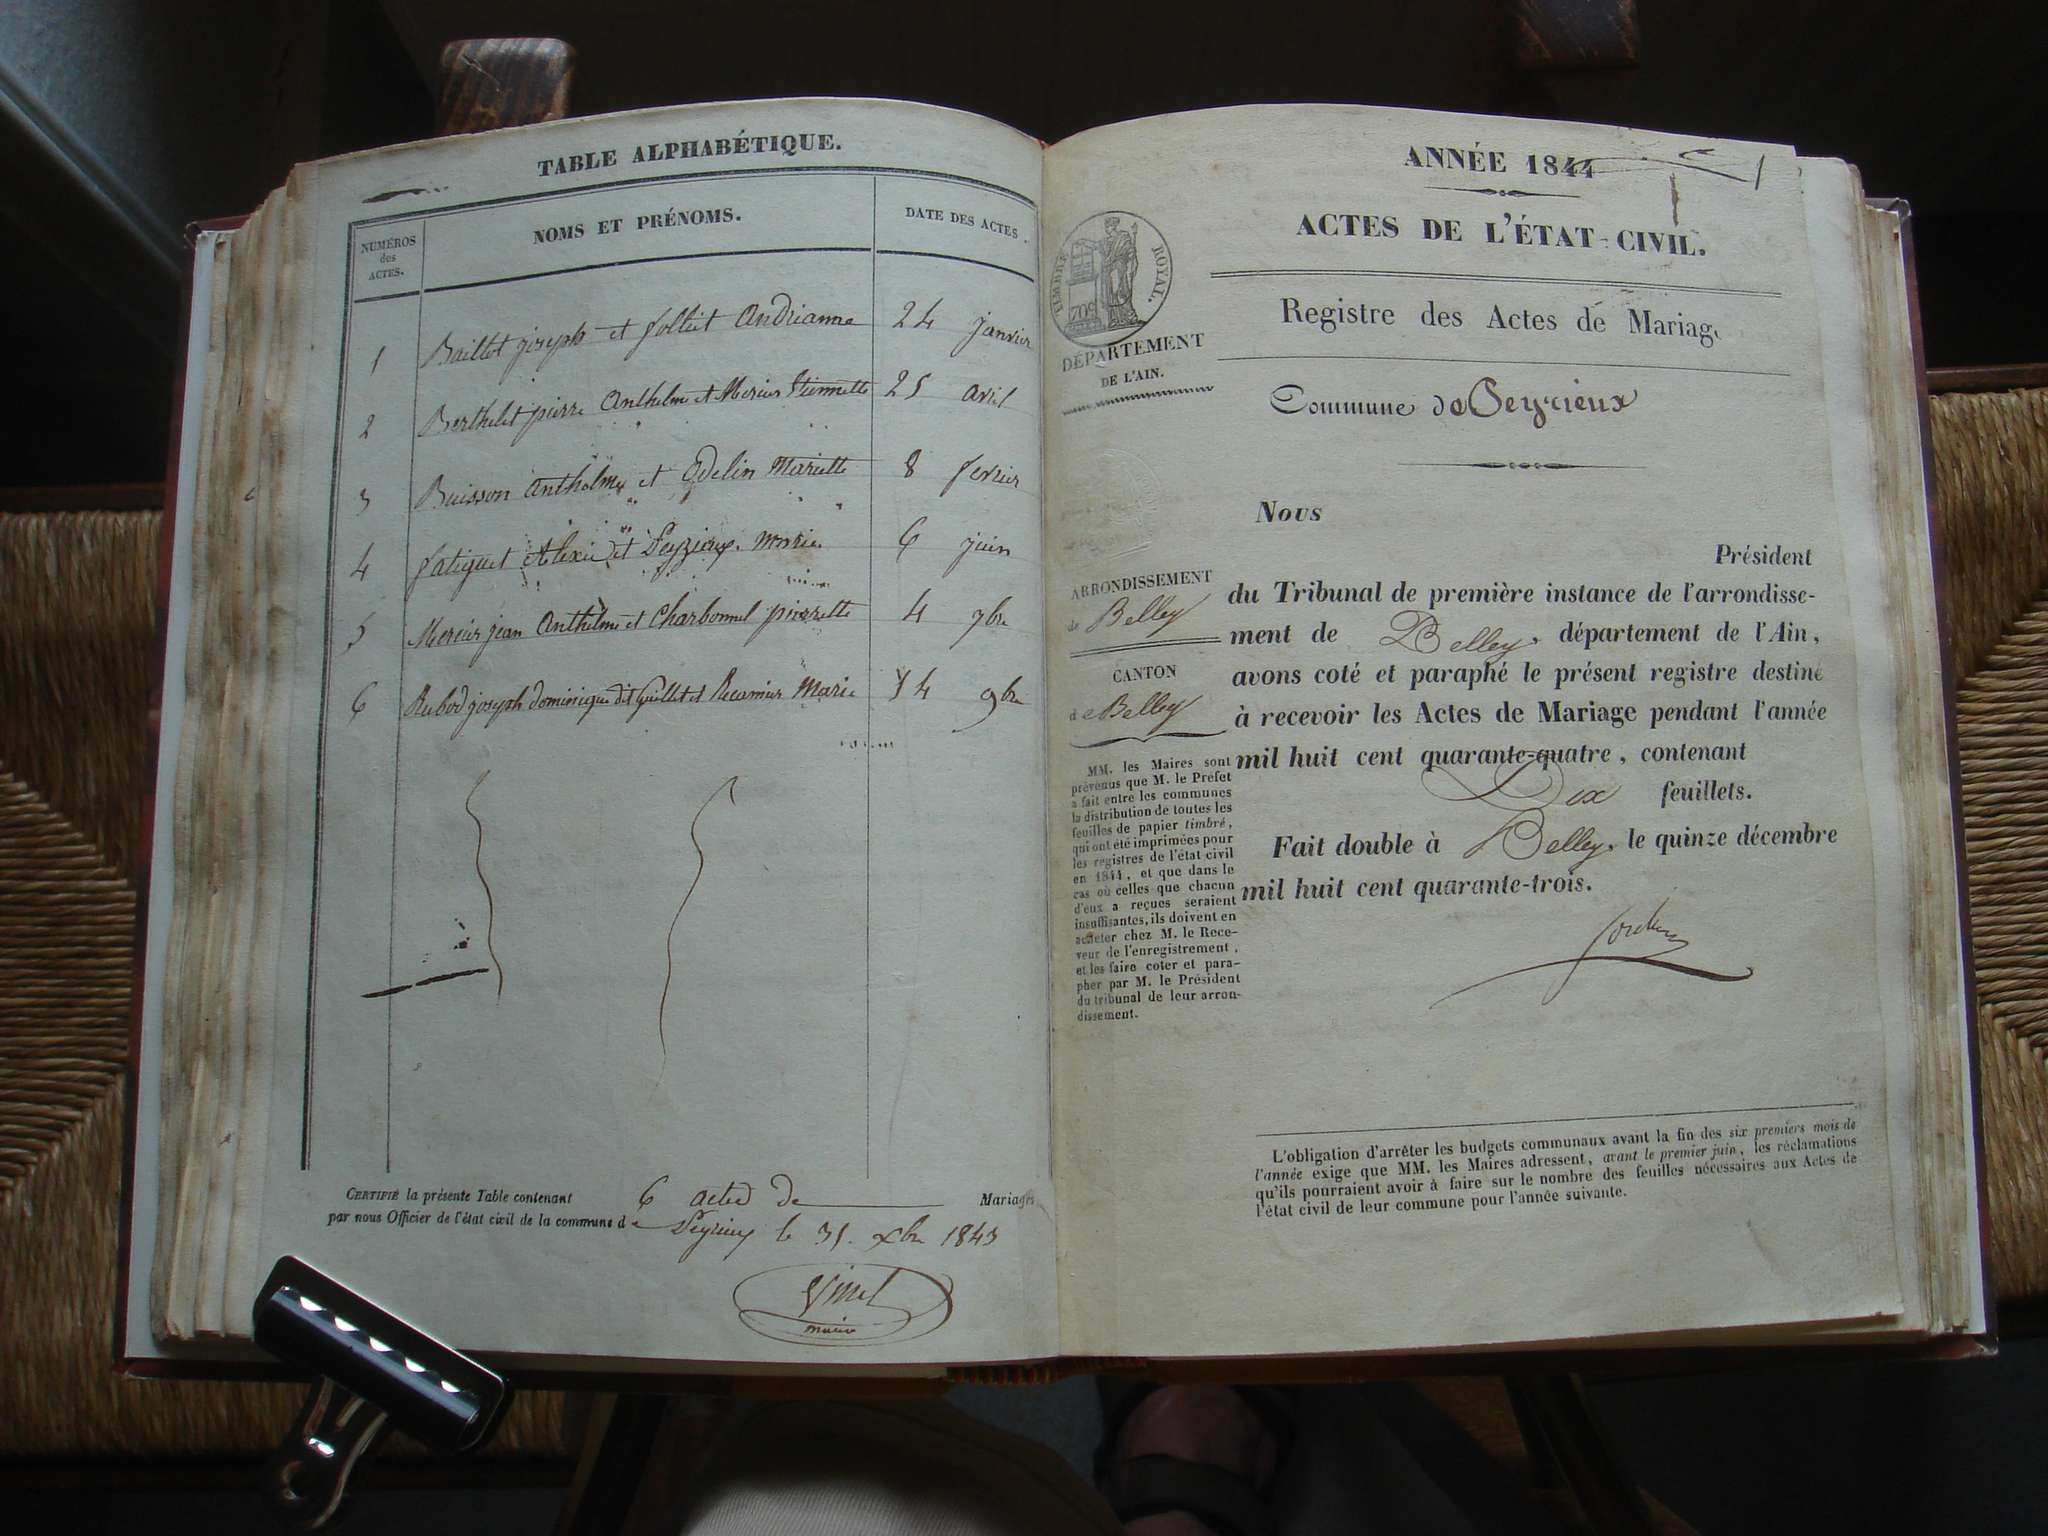 TABLE ALPHABÉTIQUE.
NUMÉROS
des
ACTES.
NOMS ET PRÉNOMS.
DATE DES ACTES.
1 Baillot joseph et follict Andrianne 24 janvier
2 Berthelet pierre Anthelme et Mercier Etiennette 25 avril
3 Buisson Anthelme et Odelin Mariette 8 fevrier
4 fatiguet Alexis et Peyzieux Marie 6 juin
5 Mercier jean Anthelme et Charbonnel pierrette 4 7bre
6 Rubod joseph dominique dit Guillet et Recamier Marie 14 9bre
CERTIFIÉ la présente Table contenant 6 actes de Mariages
par nous Officier de l'état civil de la commune de
Peyrieux le 31. xbre 1843
maire
ANNÉE 1844
1
ACTES DE L'ÉTAT-CIVIL.
TIMBRE ROYAL.
70c
Registre des Actes de Mariage
DÉPARTEMENT
DE L'AIN.
Commune de Peyrieux
Nous
Président
ARRONDISSEMENT
de Belley
CANTON
de Belley
du Tribunal de première instance de l'arrondisse-
ment de Belley, département de l'Ain,
avons coté et paraphé le présent registre destiné
à recevoir les Actes de Mariage pendant l'année
mil huit cent quarante-quatre, contenant
Dix feuillets.
Fait double à Belley, le quinze décembre
mil huit cent quarante-trois.
MM. les Maires sont
prévenus que M. le Préfet
a fait entre les communes
la distribution de toutes les
feuilles de papier timbré,
qui ont été imprimées pour
les registres de l'état civil
en 1844, et que dans le
cas où celles que chacun
d'eux a reçues seraient
insuffisantes, ils doivent en
acheter chez M. le Rece-
veur de l'enregistrement,
et les faire coter et para-
pher par M. le Président
du tribunal de leur arron-
dissement.
L'obligation d'arrêter les budgets communaux avant la fin des six premiers mois de
l'année exige que MM. les Maires adressent, avant le premier juin, les réclamations
qu'ils pourraient avoir à faire sur le nombre des feuilles nécessaires aux Actes de
l'état civil de leur commune pour l'année suivante.